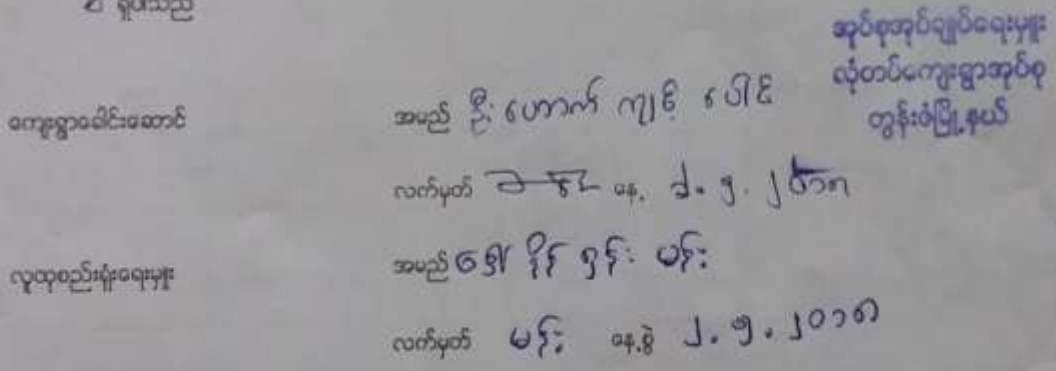 ရှိပါသည်
အုပ်စုအုပ်ချုပ်ရေးမှူး
လုံတပ်ကျေးရွာအုပ်စု
တွန်းဇံမြို့နယ်
ကျေးရွာခေါင်းဆောင် အမည် ဦး ဟောက် ကျင့် ပေါင်
လက်မှတ် နေ့
လူထုစည်းရုံးရေးမှူး အမည် ဒေါ် နိုင် ရွန်း မန်း
လက်မှတ် မန်း နေ့စွဲ ၂.၅.၂၀၁၈